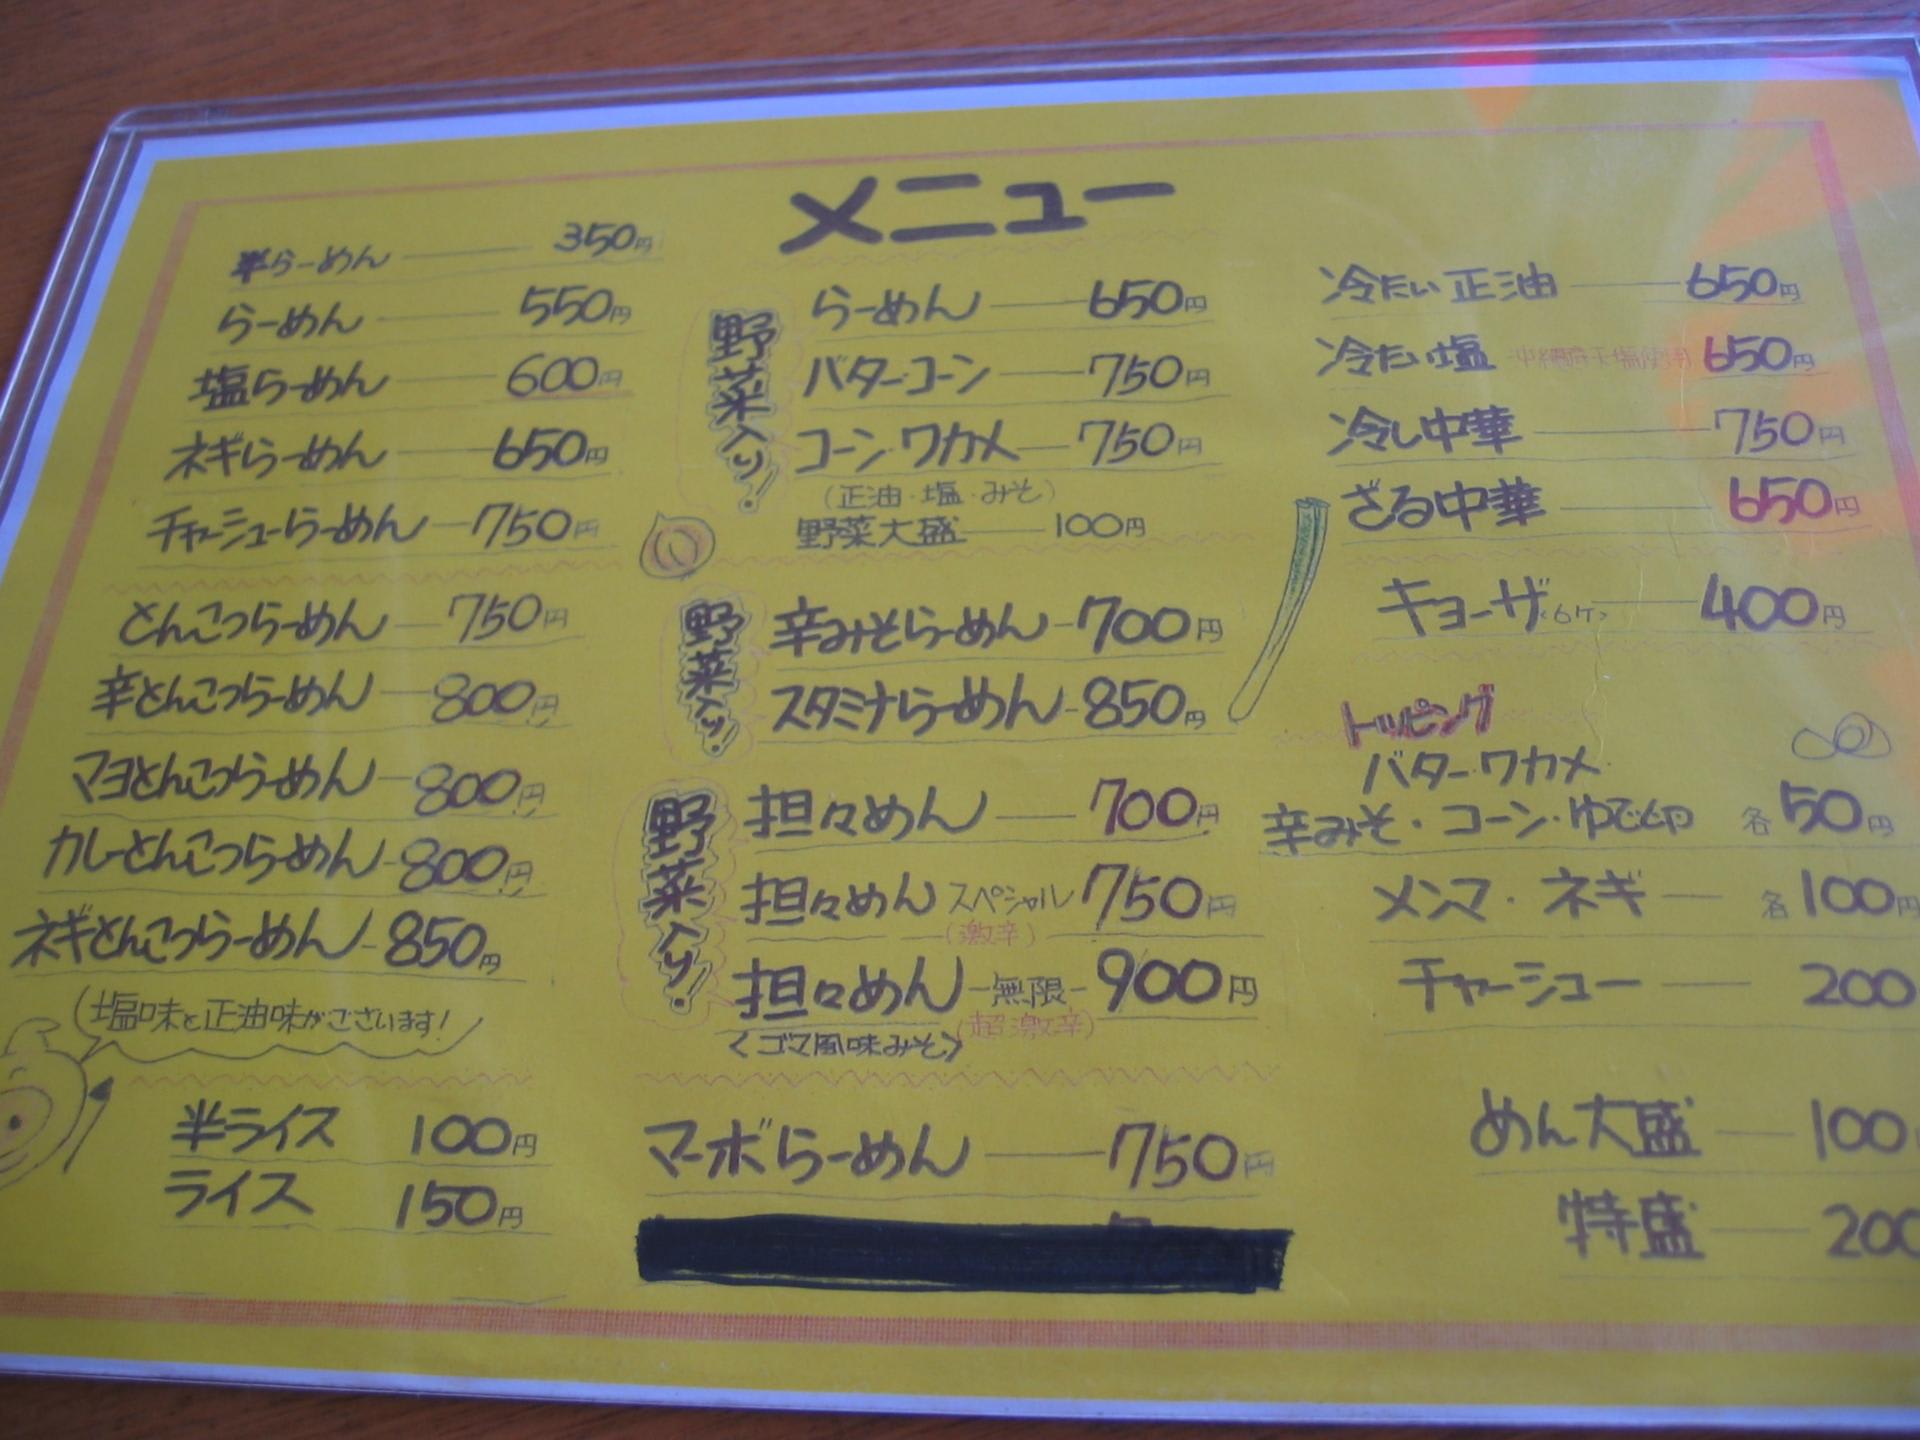 メニュー
半らーめん 350円
らーめん 550円
塩らーめん 600円
ネギらーめん 650円
チャーシューらーめん 750円
とんこつらーめん 750円
辛とんこつらーめん 800円
マヨとんこつらーめん 800円
カレーとんこつらーめん 800円
ネギとんこつらーめん 850円
塩味と正油味がございます!
半ライス 100円
ライス 150円
野菜入り!
らーめん 650円
バターコーン 750円
コーン・ワカメ 750円
(正油・塩・みそ)
野菜大盛 100円
野菜入り!
辛みそらーめん 700円
スタミナらーめん 850円
野菜入り!
担々めん 700円
担々めん スペシャル 750円
(激辛)
担々めん 無限 900円
(超激辛)
<ゴマ風味みそ>
マーボらーめん 750円
冷たい正油 650円
冷たい塩 650円
冷し中華 750円
ざる中華 650円
ギョーザ<6ケ> 400円
トッピング
バター・ワカメ
辛みそ・コーン・ゆで卵 各50円
メンマ・ネギ 各100円
チャーシュー 200
めん大盛 100
特盛 200